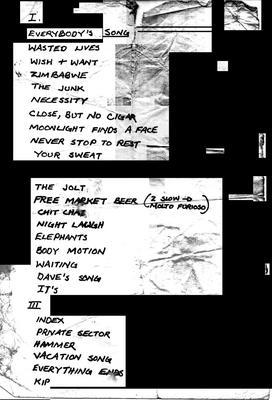 I.
EVERYBODY'S SONG
WASTED LIVES
WISH + WANT
ZIMBABWE
THE JUNK
NECESSITY
CLOSE, BUT NO CIGAR
MOONLIGHT FINDS A FACE
NEVER STOP TO REST
YOUR SWEAT
THE JOLT
FREE MARKET BEER (2 SLOW -D MOLTO FURIOSO)
CHIT CHAT
NIGHT LAUGH
ELEPHANTS
BODY MOTION
WAITING
DAVE'S SONG
IT'S
III
INDEX
PRIVATE SECTOR
HAMMER
VACATION SONG
EVERYTHING ENDS
KIP